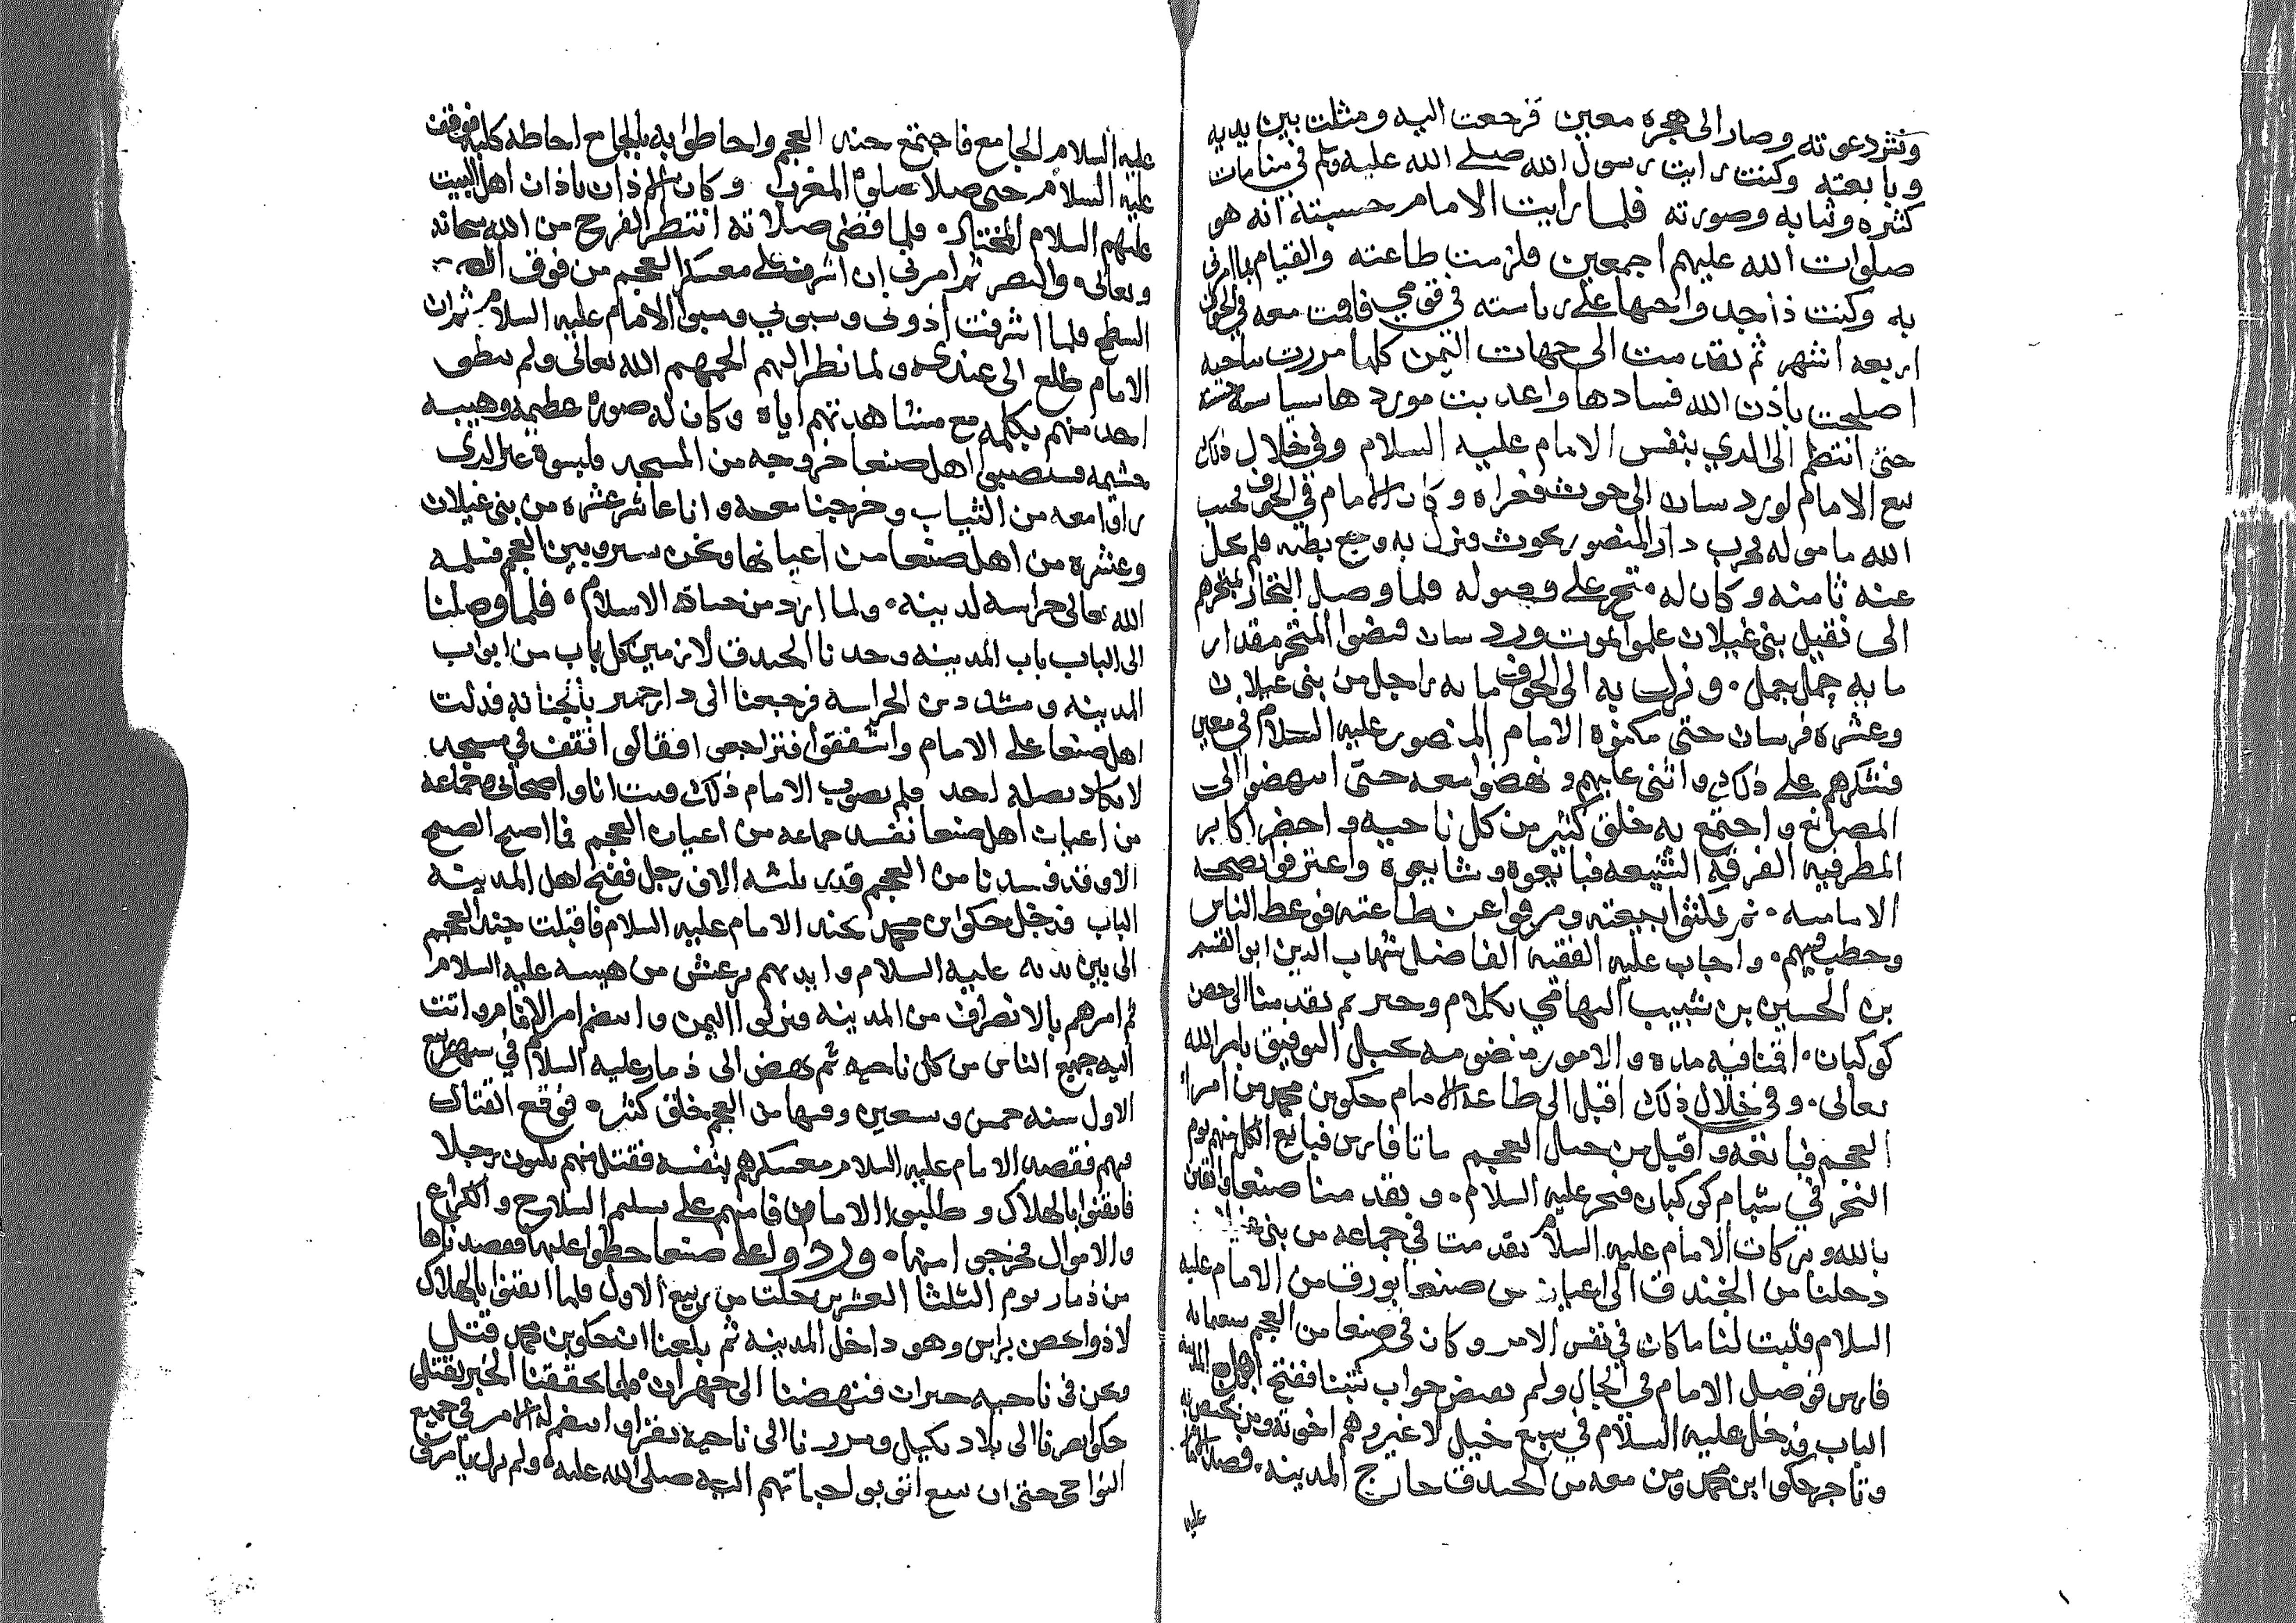 ونشر دعوته وصار الى هجره معين فرجعت اليه ومثلت بين يديه
وبايعته وكنت رايت رسول الله صلى الله عليه وسلم في منامات
كثره وشابه وصورته فلما رايت الامام حسبته انه هو
صلوات الله عليهم اجمعين فلزمت طاعته والقيام بما امرني
به وكنت ذا جد واحبها على رياسته في قومي فاقمت معه في الجوف
اربعه اشهر ثم تقدمت الى جهات اليمن كلما مررت بناحيه
اصلحت باذن الله فسادها واعدبت موردها سياسه
حتى انتظم الى الذي بنفس الامام عليه السلام وفي خلال ذلك
بيع الامام لوردسان الى حوث فغراه وكان الامام في الجوف فحسب
الله ماموله فخرب دار المنصور بحوث ونزل به وجع بطنه فلم يحل
عنه ثامنه وكان له متجر على وصوله فلما وصل التجار بمتجرهم
الى نقيل بني غيلان علموا بموت وردسان فقضوا المتجر مقدار
مايه جمل جمل ونزلت به الى الجوف مايه راجل من بني غيلان
وعشره فرسان حتى مكنوه الامام المنصور عليه السلام في معين
فشكرهم على ذلك واثنى عليهم ونهضوا معه حتى انتهضوا الى
المصانع واجتمع به خلق كثير من كل ناحيه واحضر اكابر
المطرفيه الفرقه الشيعه فبايعوه وشايعوه واعترفوا بصحه
الامامه ثم نكثوا بيعته ومرقوا عن طاعته فوعظ الناس
وخطب فيهم واجاب عليه الفقيه الفاضل شهاب الدين ابو القسم
بن الحسين بن شبيب التهامي بكلام وحيز ثم تقدمنا الى حصن
كوكبان اقمنا فيه مده والامور منضومه بحبل التوفيق بامر الله
تعالى وفي خلال ذلك اقبل الى طاعه الامام حكو بن محمد من امراء
العجم فبايعه واقبل من خيل العجم ماتا فارس فبايع الكل منهم يوم
النحر في شبام كوكبان فنحر عليه السلام وتقدمنا صنعا واثقين
بالله وبركات الامام عليه السلام تقدمت في جماعه من بني
دخلنا من الخندق الى اعيان من صنعا بورق من الامام عليه
السلام فثبت لنا ما كان في نفس الامر وكان في صنعا من العجم سبعمايه
فارس فوصل الامام في الحال ولم يعض جواب كتبنا ففتح اهل المدينه
الباب فدخل عليه السلام في سبع خيل لا غير وهم اخوته ومن يختص به
وتاجر حكو ابن محمد ومن معه من الخندق خارج المدينه فصلى الامام
عليه
عليه السلام الجامع فاجتمع جند العجم واحاطوا به بالجامع احاطه كليه فوقف
عليه السلام حتى صلا صلوه المغرب وكان الاذان باذان اهل البيت
عليهم السلام المختار فلما قضى صلاته انتظر الفرج من الله سبحانه
وتعالى والنصر ثم امرني ان اشرف على معسكر العجم من فوق
السطح فلما اشرفت اذوني وسبوني وسبوا الامام عليه السلام ثم ان
الامام طلع الى عندي ولما نظر اليهم الجمهم الله تعالى ولم ينطق
احد منهم بكلمه مع مشاهدتهم اياه وكان له صوره عظيمه وهيبه
حشيمه فاستصوب اهل صنعا خروجه من المسجد ولبسوه غير الذي
راوا معه من الثياب وخرجنا معه وانا عاشر عشره من بني غيلان
وعشره من اهل صنعا من اعيانها ونحن نسير وبين العجم فسلمه
الله تعالى حراسه لدينه ولما اراد من حياه الاسلام فلما وصلنا
الى الباب باب المدينه وجدنا الخندق لازمين كل باب من ابواب
المدينه ومشدد من الحراسه فرجعنا الى دار فدلت
اهل صنعا على الامام واشفقوا فتراجعوا فقالوا نقف في مسجد
لا يكاد يصله احد فلم يصوب الامام ذلك فبت انا واصحابي وجماعه
من اعيان اهل صنعا نفسد جماعه من اعيان العجم فما اصبح الصبح
الا وقد فسدنا من العجم قدر ثلثه الاف رجل ففتح اهل المدينه
الباب فدخل حكو ابن محمد بجند الامام عليه السلام فاقبلت جند العجم
الى بين يديه عليه السلام وايديهم ترعش من هيبته عليه السلام
ثم امرهم بالانصراف من المدينه فنزلوا اليمن وانتضم امر الامام واتت
اليه جميع الناس من كل ناحيه ثم نهض الى ذمار عليه السلام في شهر ربيع
الاول سنه خمس وسعين وفيها من العجم خلق كثيره فوقع القتال
فيهم فقصد الامام عليه السلام معسكرهم بنفسه فقتل منهم ثلثون رجلا
فايقنوا بالهلاك وطلبوا الامان فامنهم على تسليم السلاح والكراع
والاموال فخرجوا منها وردوا على صنعا حطوا عليها فقصدناها
من ذمار يوم الثلثا العشرين خلت من ربيع الاول فلما ايقنوا بالهلاك
لاذوا بحصن براس وهو داخل المدينه ثم بلغنا ان حكو بن محمد قتل
ونحن في ناحيه فنهضنا الى جهران فلما تحققنا الخبر بقتل
حكو صرنا الى بلاد بكيل ومررنا الى ناحيه واستقر له الامر في جميع
النواحي حتى ان بيع اتوبوا لجباتهم اليه صلى الله عليه ولم يزل يامرني